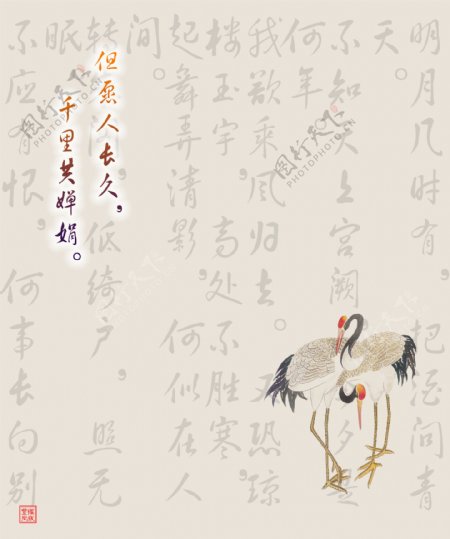 明月几时有，把酒问青
天。
不知天上宫阙，夕
何年
我欲乘风归去。又恐琼
楼玉宇，高处不胜寒，
起舞弄清影，何似在人
间。
转阁，低绮户，照无
眠
不应有恨，何事长向别
但愿人长久，
千里共婵娟。
图行天下
PHOTOPHOTO.CN